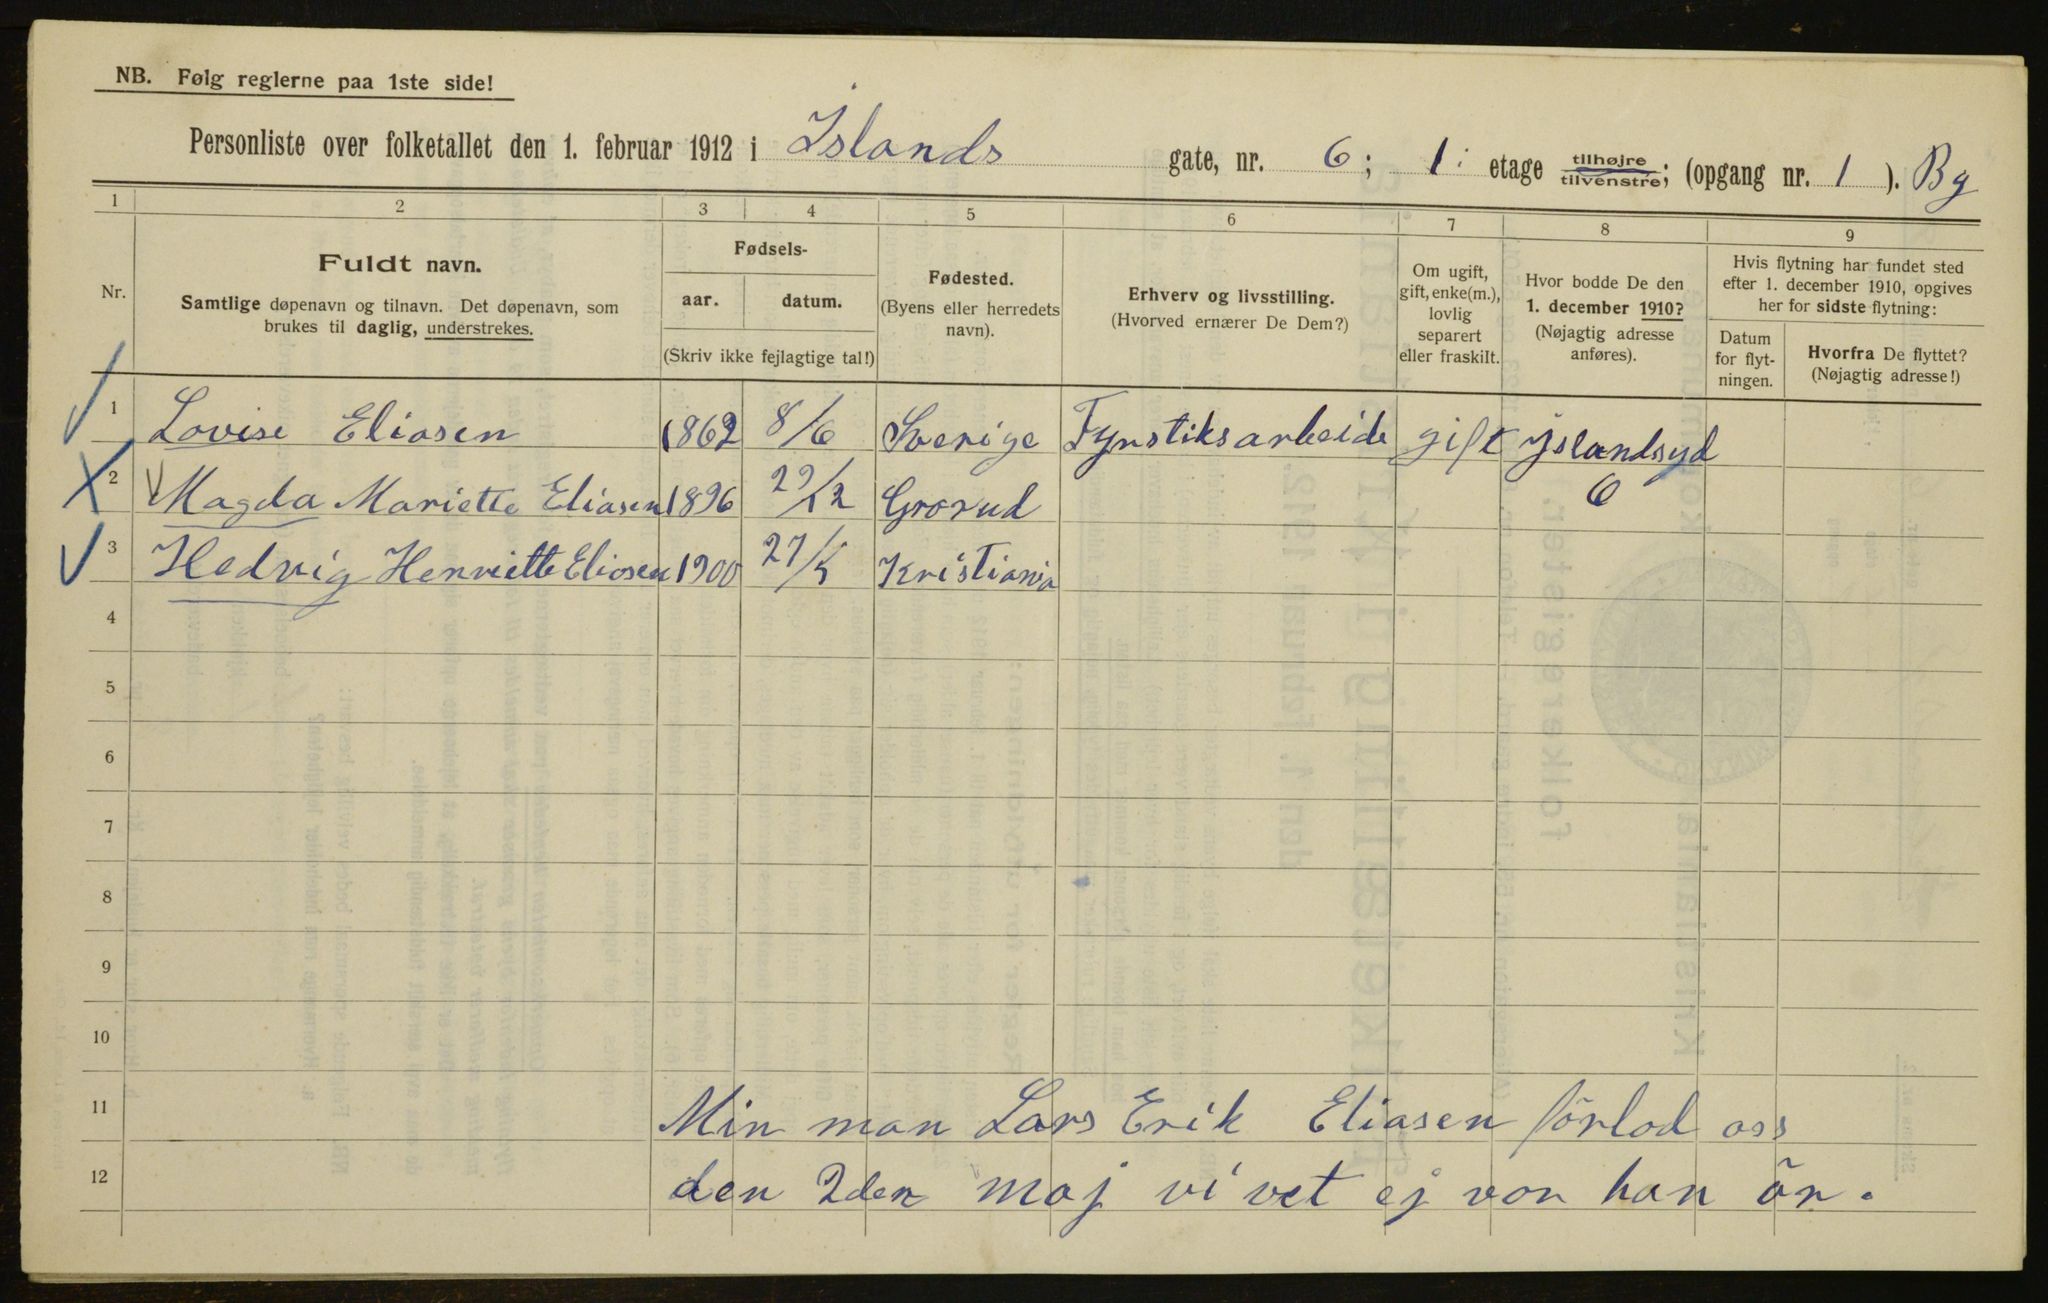 NB. Følg reglerne paa 1ste side!
Personliste over folketallet den 1. februar 1912 i Islands gate, nr. 6; 1. etage tilhøjre tilvenstre; (opgang nr. 1). Bg
1 2 3 4 5 6 7 8 9
Nr.
Fuldt navn.
Samtlige døpenavn og tilnavn. Det døpenavn, som
brukes til daglig, understrekes.
Fødsels-
aar. datum.
(Skriv ikke fejlagtige tal!)
Fødested.
(Byens eller herredets
navn).
Erhverv og livsstilling.
(Hvorved ernærer De Dem?)
Om ugift,
gift, enke(m.),
lovlig
separert
eller fraskilt.
Hvor bodde De den
1. december 1910?
(Nøjagtig adresse
anføres).
Hvis flytning har fundet sted
efter 1. december 1910, opgives
her for sidste flytning:
Datum
for flyt-
ningen.
Hvorfra De flyttet?
(Nøjagtig adresse!)
1 Lovise Eliasen 1862 8/6 Sverige Fyrstiksarbeide gift Yslandsgd
6
2 Magda Mariette Eliasen 1896 29/12 Grorud
3 Hedvig Henriette Eliasen 1900 27/5 Kristiania
4
5
6
7
8
9
10
11 Min man Lars Erik Eliasen förlod oss
12 den 2den maj vi vet ej vor han är.